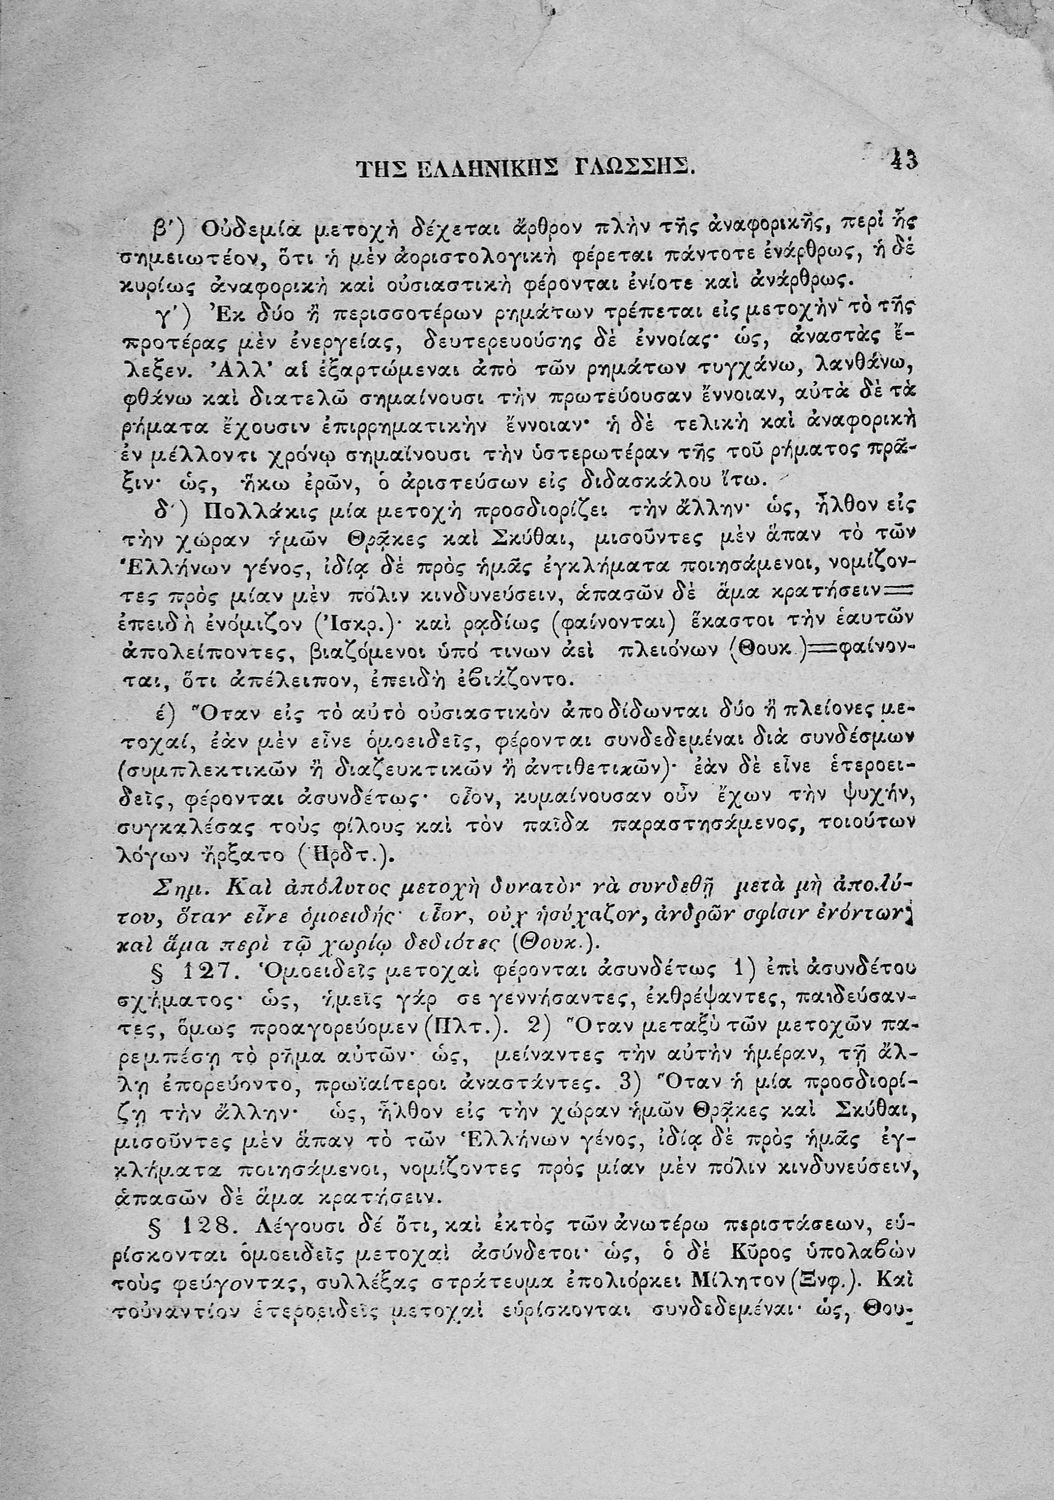 ΤΗΣ ΕΛΛΗΝΙΚΗΣ ΓΛΩΣΣΗΣ. 43
β΄) Οὐδεμία μετοχὴ δέχεται ἄρθρον πλὴν τῆς ἀναφορικῆς, περὶ ἧς
σημειωτέον, ὅτι ἡ μὲν ἀοριστολογικὴ φέρεται πάντοτε ἐνάρθρως, ἡ δὲ
κυρίως ἀναφορικὴ καὶ οὐσιαστικὴ φέρονται ἐνίοτε καὶ ἀνάρθρως.
γ΄) Ἐκ δύο ἢ περισσοτέρων ρημάτων τρέπεται εἰς μετοχὴν τὸ τῆς
προτέρας μὲν ἐνεργείας, δευτερευούσης δὲ ἐννοίας· ὡς, ἀναστὰς ἔ-
λεξεν. Ἀλλ' αἱ ἐξαρτώμεναι ἀπὸ τῶν ρημάτων τυγχάνω, λανθάνω,
φθάνω καὶ διατελῶ σημαίνουσι τὴν πρωτεύουσαν ἔννοιαν, αὐτὰ δὲ τὰ
ρήματα ἔχουσιν ἐπιρρηματικὴν ἔννοιαν· ἡ δὲ τελικὴ καὶ ἀναφορικὴ
ἐν μέλλοντι χρόνῳ σημαίνουσι τὴν ὑστερωτέραν τῆς τοῦ ρήματος πρᾶ-
ξιν· ὡς, ἥκω ἐρῶν, ὁ ἀριστεύσων εἰς διδασκάλου ἴτω.
δ΄) Πολλάκις μία μετοχὴ προσδιορίζει τὴν ἄλλην· ὡς, ἦλθον εἰς
τὴν χώραν ἡμῶν Θρᾷκες καὶ Σκύθαι, μισοῦντες μὲν ἅπαν τὸ τῶν
Ἑλλήνων γένος, ἰδίᾳ δὲ πρὸς ἡμᾶς ἐγκλήματα ποιησάμενοι, νομίζον-
τες πρὸς μίαν μὲν πόλιν κινδυνεύσειν, ἁπασῶν δὲ ἅμα κρατήσειν=
ἐπειδὴ ἐνόμιζον (Ἰσκρ.)· καὶ ρᾳδίως (φαίνονται) ἕκαστοι τὴν ἑαυτῶν
ἀπολείποντες, βιαζόμενοι ὑπό τινων ἀεὶ πλειόνων (Θουκ.)=φαίνον-
ται, ὅτι ἀπέλειπον, ἐπειδὴ ἐβιάζοντο.
έ) Ὅταν εἰς τὸ αὐτὸ οὐσιαστικὸν ἀποδίδωνται δύο ἢ πλείονες με-
τοχαί, ἐὰν μὲν εἶνε ὁμοειδεῖς, φέρονται συνδεδεμέναι διὰ συνδέσμων
(συμπλεκτικῶν ἢ διαζευκτικῶν ἢ ἀντιθετικῶν)· ἐὰν δὲ εἶνε ἑτεροει-
δεῖς, φέρονται ἀσυνδέτως· οἷον, κυμαίνουσαν οὖν ἔχων τὴν ψυχήν,
συγκαλέσας τοὺς φίλους καὶ τὸν παῖδα παραστησάμενος, τοιούτων
λόγων ἤρξατο (Ἡρδτ.).
Σημ. Καὶ ἀπόλυτος μετοχὴ δυνατὸν νὰ συνδεθῇ μετὰ μὴ ἀπολύ-
του, ὅταν εἶνε ὁμοειδής· οἷον, οὐχ ἡσύχαζον, ἀνδρῶν σφίσιν ἐνόντων,
καὶ ἅμα περὶ τῷ χωρίῳ δεδιότες (Θουκ.).
§ 127. Ὁμοειδεῖς μετοχαὶ φέρονται ἀσυνδέτως 1) ἐπὶ ἀσυνδέτου
σχήματος· ὡς, ἡμεῖς γάρ σε γεννήσαντες, ἐκθρέψαντες, παιδεύσαν-
τες, ὅμως προαγορεύομεν (Πλτ.). 2) Ὅταν μεταξὺ τῶν μετοχῶν πα-
ρεμπέσῃ τὸ ρῆμα αὐτῶν· ὡς, μείναντες τὴν αὐτὴν ἡμέραν, τῇ ἄλ-
λῃ ἐπορεύοντο, πρωϊαίτεροι ἀναστάντες. 3) Ὅταν ἡ μία προσδιορί-
ζῃ τὴν ἄλλην· ὡς, ἦλθον εἰς τὴν χώραν ἡμῶν Θρᾷκες καὶ Σκύθαι,
μισοῦντες μὲν ἅπαν τὸ τῶν Ἑλλήνων γένος, ἰδίᾳ δὲ πρὸς ἡμᾶς ἐγ-
κλήματα ποιησάμενοι, νομίζοντες πρὸς μίαν μὲν πόλιν κινδυνεύσειν,
ἁπασῶν δὲ ἅμα κρατήσειν.
§ 128. Λέγουσι δέ ὅτι, καὶ ἐκτὸς τῶν ἀνωτέρω περιστάσεων, εὑ-
ρίσκονται ὁμοειδεῖς μετοχαὶ ἀσύνδετοι· ὡς, ὁ δὲ Κῦρος ὑπολαβὼν
τοὺς φεύγοντας, συλλέξας στράτευμα ἐπολιόρκει Μίλητον (Ξνφ.). Καὶ
τοὐναντίον ἑτεροειδεῖς μετοχαὶ εὑρίσκονται συνδεδεμέναι· ὡς, Θου-